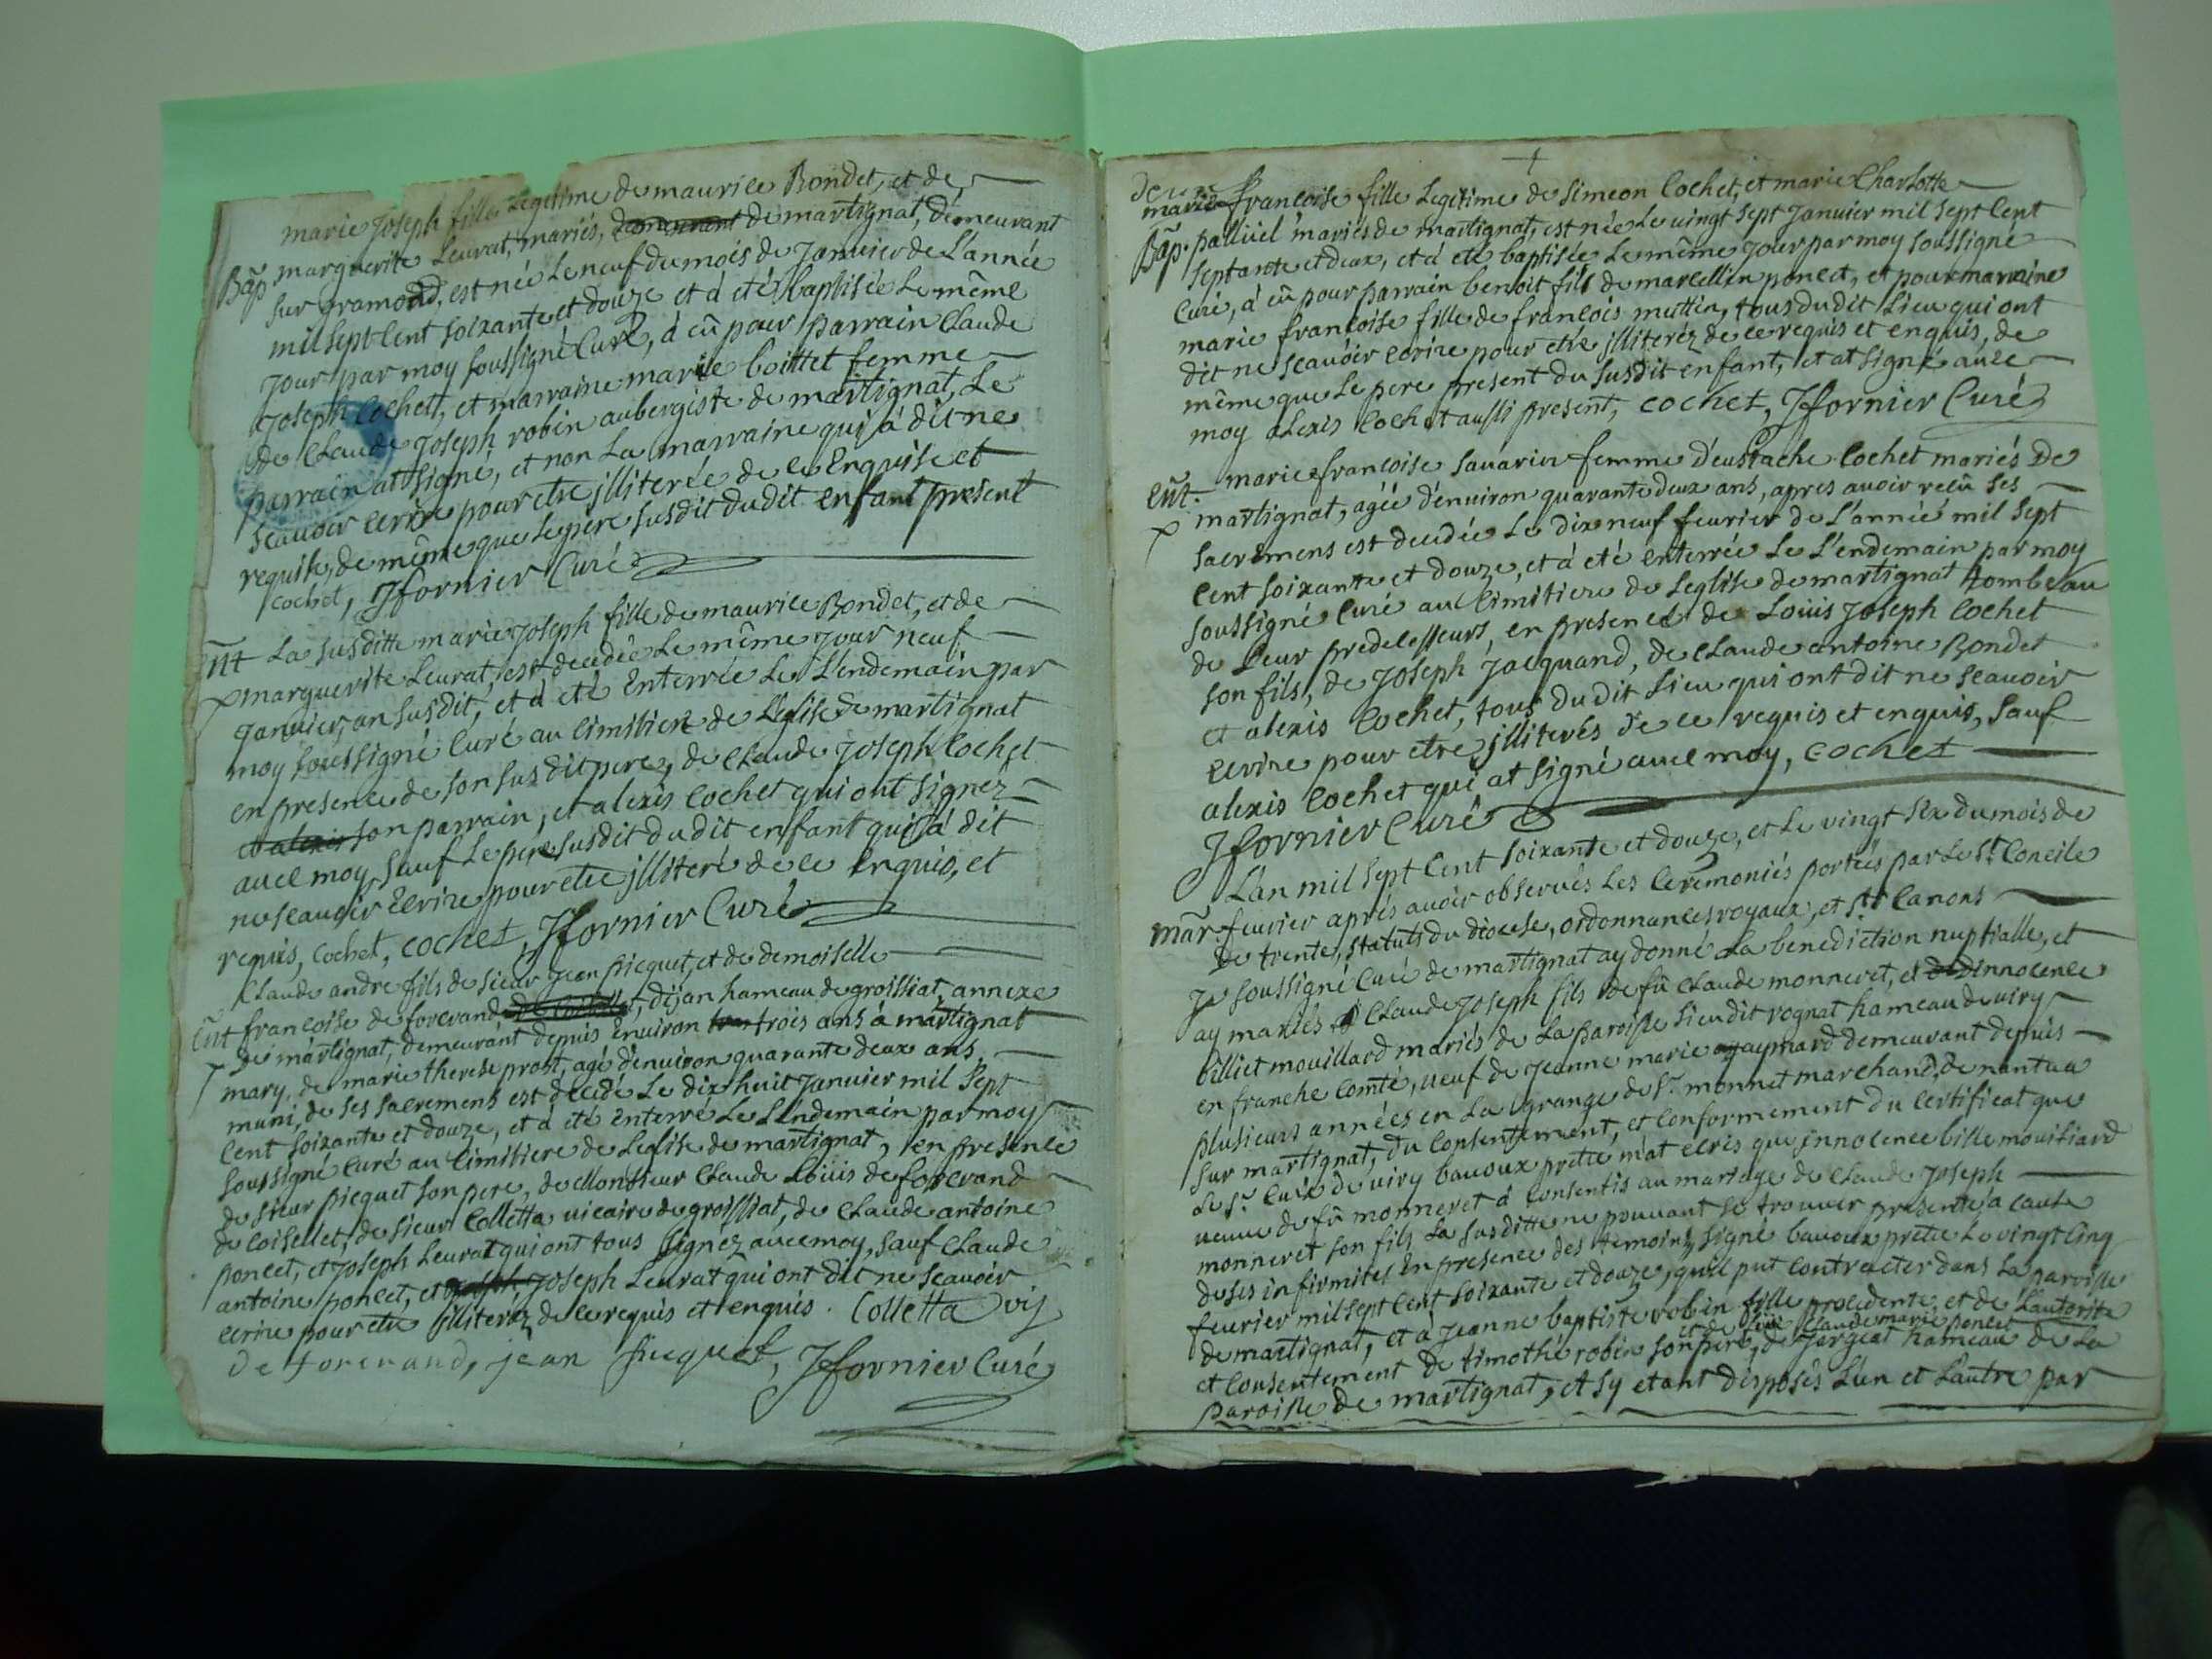 marie joseph fille Legitime de maurice Bondet, et de
Bap marguerite Leurat, mariés, de martignat, demeurant
sur gramond, est née le neuf du mois de janvier de L'année
mil sept cent soixante et douze et à eté baptisée Le même
jour par moy soussigné Curé, à eû pour parrain Claude
joseph Cochet, et marraine marie boittet femme
de Claude joseph robin aubergiste de martignat, Le
parrain at signé, et non La marraine qui à dit ne
scauoir ecrire pour etre jlliterée de ce Enquise et
requise, de même que le père susdit dudit enfant présent
cochet, Jfornier Curé
Ent La susditte marie joseph fille de maurice Bondet, et de
marguerite Leurat, est decedée Le même jour neuf
janvier, an susdit, et à eté Enterrée Le L'endemain par
moy soussigné Curé au Cimitiere de L'eglise de martignat
en presence de son susdit pere, de Claude joseph Cochet
et alexis son parrain, et alexis Cochet qui ont signéz
auec moy, sauf Le pere susdit dudit enfant qui à dit
ne scauoir Ecrire pour etre jlliteré de ce Enquis, et
requis, Cochet, cochet, Jfornier Curé
Claude andre fils de sieur jean picquet, et de demoiselle
Ent francoise de forcrand, dijan hameau de groissiat, annexe
de martignat, demeurant depuis Enuiron trois ans à martignat
mary, de marie therese prost, agé d'enuiron quarante deux ans
muni, de ses sacremens est decedé Le dix huit janvier mil sept
cent soixante et douze, et à eté enterré Le L'endemain par moy
soussigné Curé au Cimitiere de L'eglise de martignat, en presence
de sieur picquet son pere, de Monsieur Claude Louis de forcrand
de Coisellet, de sieur Colletta uicaire de groissiat, de Claude antoine
poncet, et joseph Leurat qui ont tous signez auec moy, sauf Claude
antoine poncet, et joseph Leurat qui ont dit ne scauoir
ecrire pour etre jlliterez de ce requis et enquis. Colletta vic
de forcrand, jean picquet, Jfornier Curé
marie francoise fille Legitime de Simeon Cochet, et marie Charlotte
Bap. palluel mariés de martignat, est née Le uingt sept janvier mil sept Cent
septante et deux, et à eté baptisée Le même jour par moy soussigné
Curé, à eû pour parrain benoit fils de marcellin poncet, et pour marraine
marie francoise fille de francois mettin, tous dudit Lieu qui ont
dit ne scauoir ecrire pour etre jlliteréz de ce requis et enquis, de
même que Le pere present du susdit enfant, et at signé auec
moy alexis Cochet aussi present, cochet, Jfornier Curé
Ent. marie francoise sauarin femme d'eustache Cochet mariés de
martignat, agée d'enuiron quarante deux ans, apres auoir recû ses
sacremens est decedée Le dix neuf feurier de L'année mil sept
cent soixante et douze, et à eté enterrée Le L'endemain par moy
soussigné Curé au Cimitiere de Leglise de martignat tombeau
de Leur predecesseurs, en presence de Louis joseph Cochet
son fils, de joseph jacquand, de Claude antoine Bondet
et alexis Cochet, tous dudit Lieu qui ont dit ne scauoir
ecrire pour etre jlliterés de ce requis et enquis, sauf
alexis Cochet qui at signé auec moy, cochet
Jfornier Curé
L'an mil sept Cent soixante et douze, et Le vingt six du mois de
mar. feurier aprés auoir obserués Les Ceremoniés portées par Le St Concile
de trente, statuts du diocese, ordonnances royaux, et sts Canons
Je soussigné Curé de martignat ay donné La benediction nuptialle, et
ay mariés Claude joseph fils de fû Claude monneret, et d'innocence
billiet mouillard mariés de La paroisse Lieu dit rognat hameau de uiry
en franche Comté, ueuf de jeanne marie aymard demeurant depuis
plusieurs années en La grange de Sr. monnet marchand, de nantua
sur martignat, du Consentement, et Conformement du Certificat que
Le Sr. Curé de uiry bauoux pretre m'at ecris que jnnocence bille mouillard
ueuue de fû monneret à Consentis au mariage de Claude joseph
monneret son fils La susditte ne pouuant se trouuer presente a cause
de ses infirmites en presence des temoins, signé bauoux pretre Le vingt cinq
feurier mil sept Cent soixante et douze, qu'il put Contracter dans La paroisse
de martignat, et à jeanne baptiste robin fille procedente, et de L'autorite
et de Claude marie poncet
et Consentement de timothé robin son pere, de jargeat hameau de La
paroisse de martignat, et sy etant desposés L'un et L'autre par